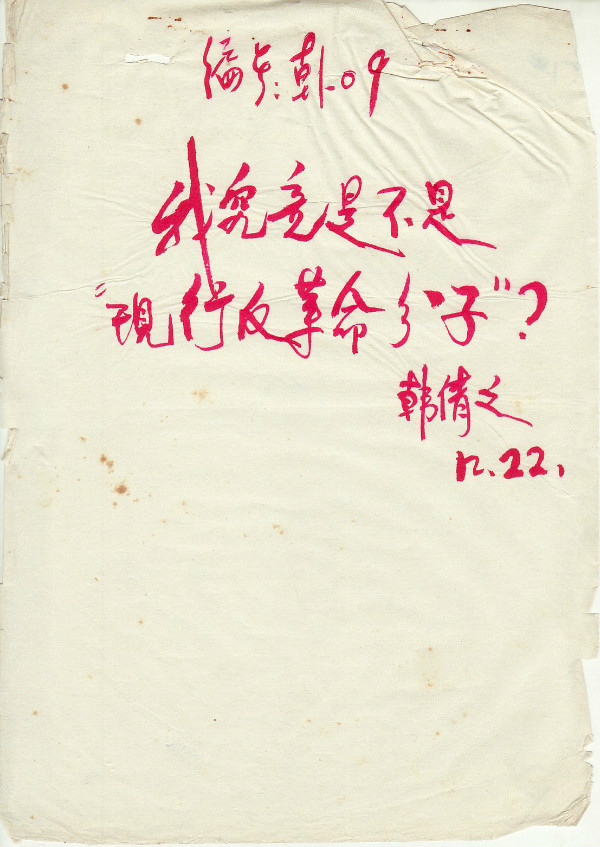 编号:韩.09
我究竟是不是
"现行反革命分子"?
韩倩之
12.22.